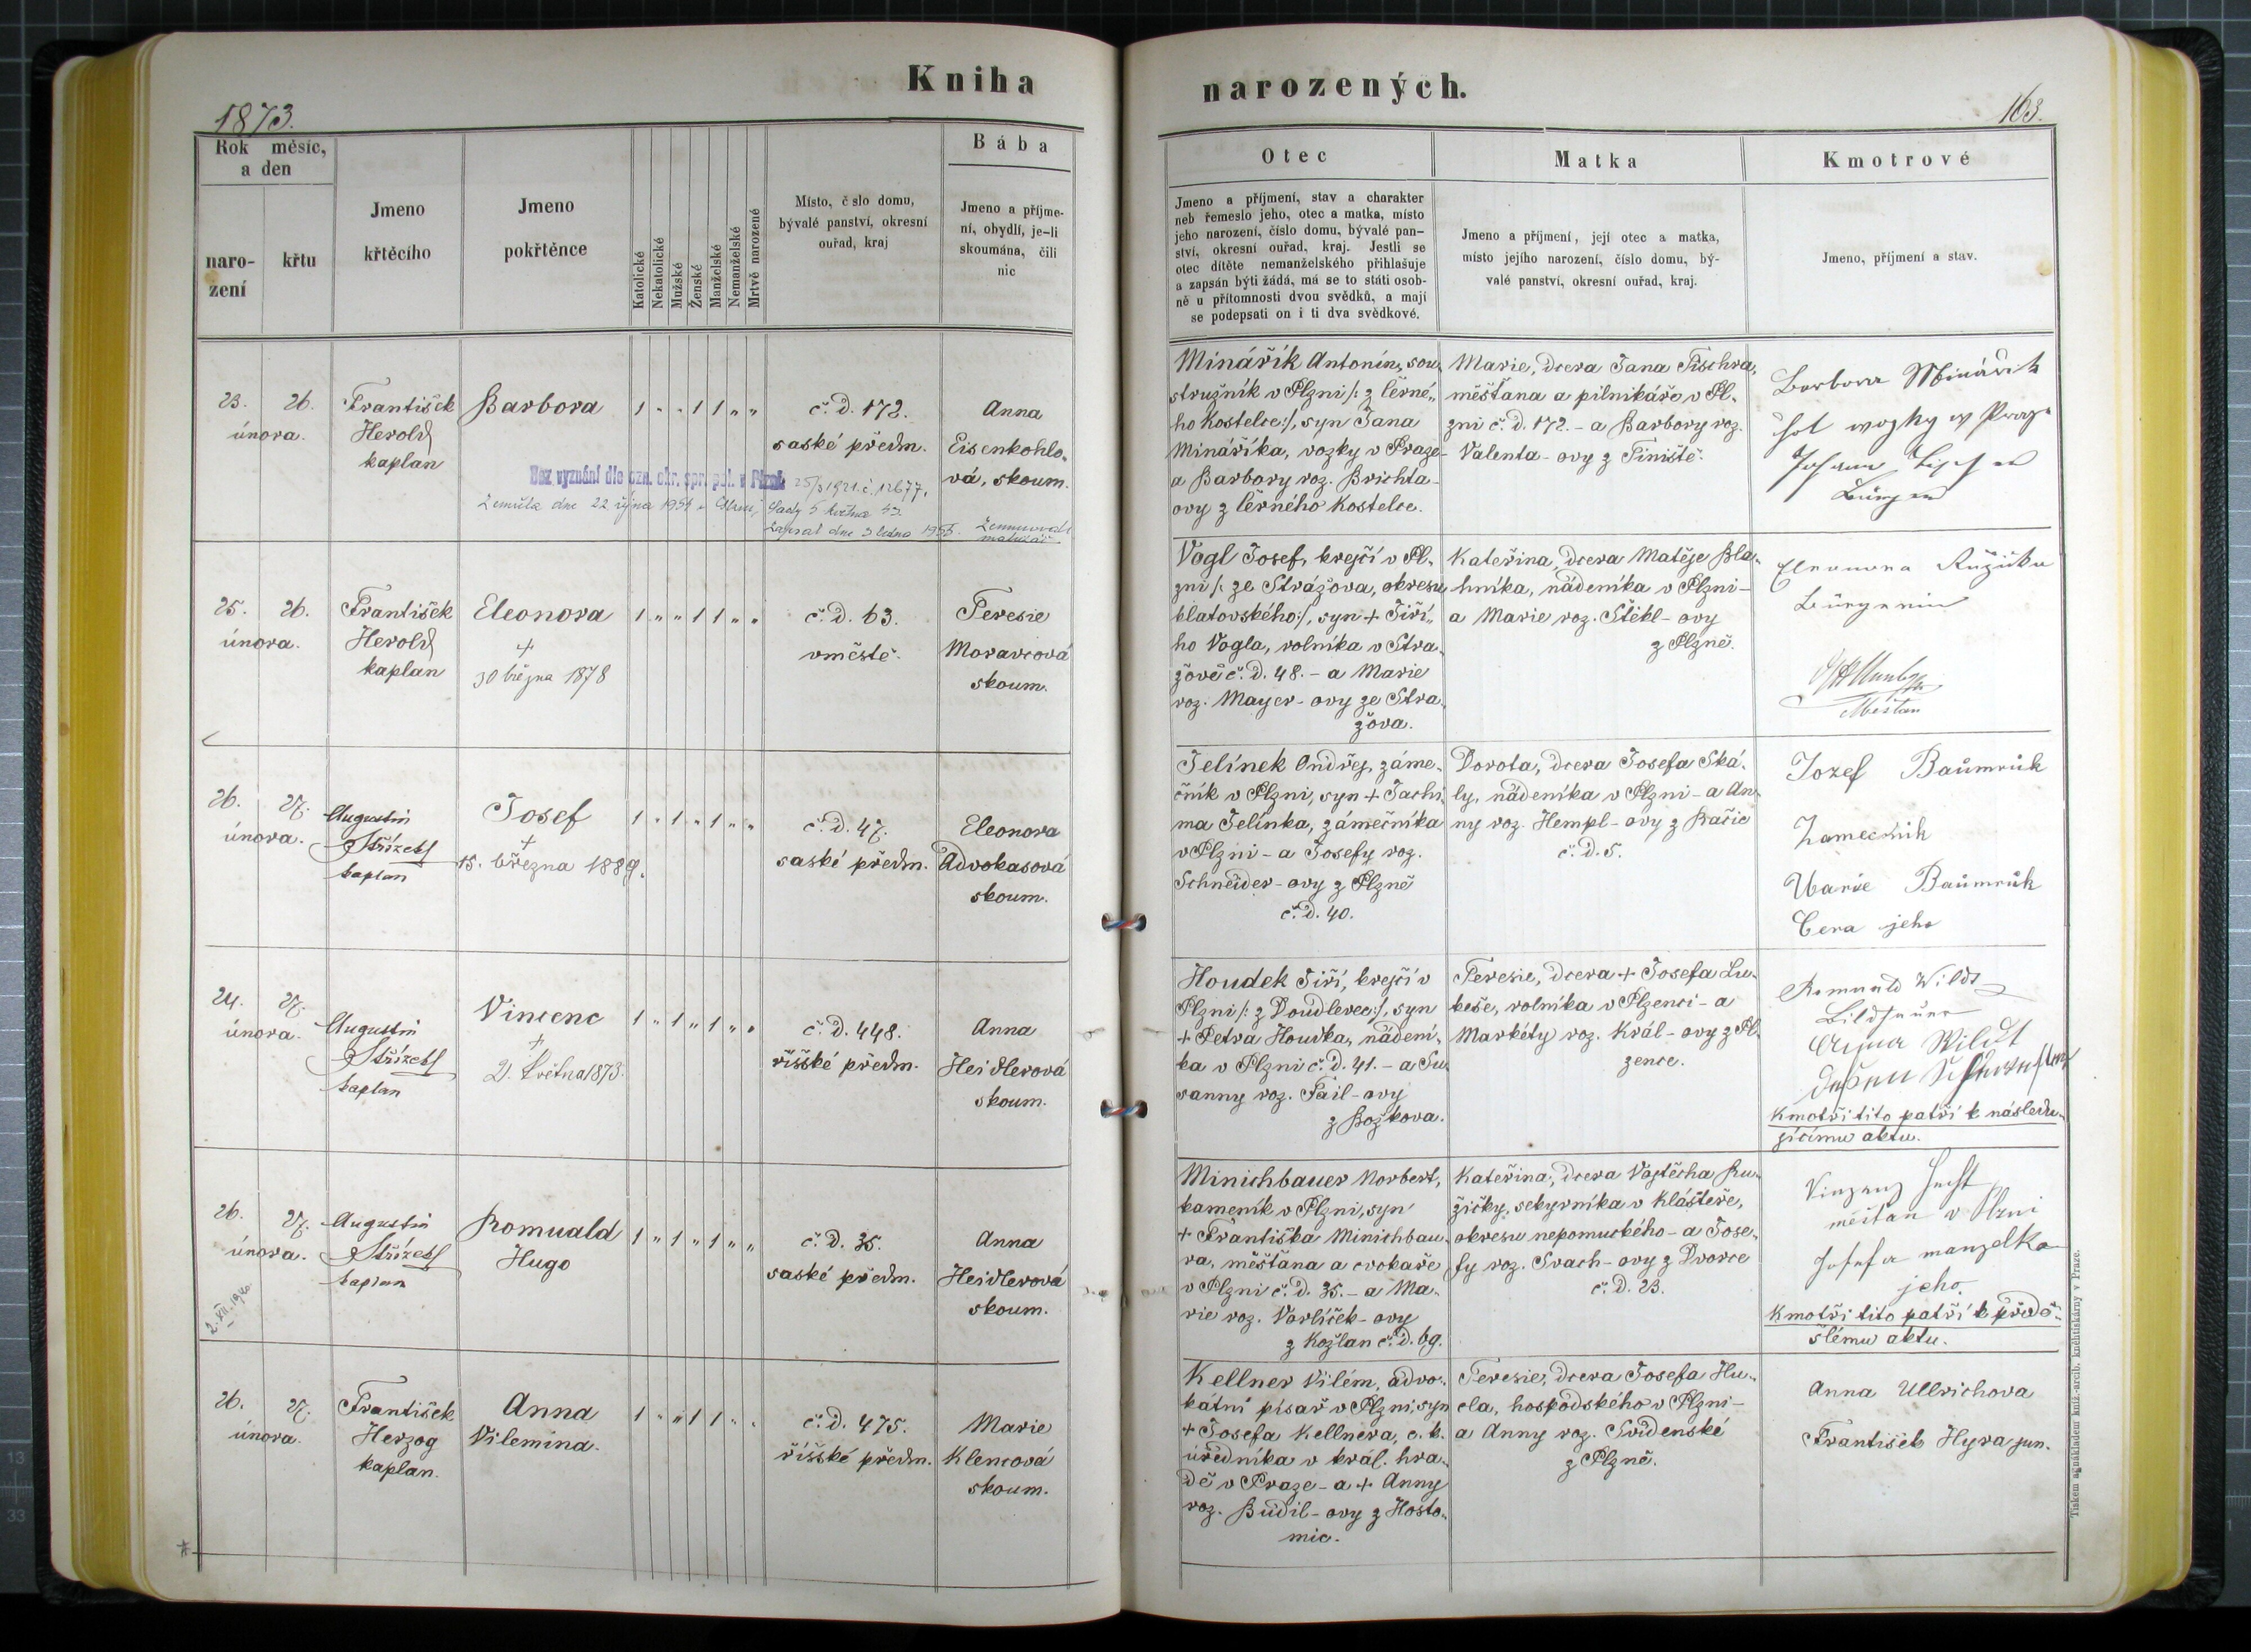 Kniha
narozených.
1873.
163.
Rok měsíc, a den
naro-
zení
křtu
Jmeno
křtěcího
Jmeno
pokřtěnce
Katolické
Nekatolické
Mužské
Ženské
Manželské
Nemanželské
Mrtvě narozené
Místo, č slo domu,
bývalé panství, okresní
ouřad, kraj
Bába
Jmeno a příjme-
ní, obydlí, je-li
skoumána, čili
nic
Otec
Jmeno a příjmení, stav a charakter
neb řemeslo jeho, otec a matka, místo
jeho narození, číslo domu, bývalé pan-
ství, okresní ouřad, kraj. Jestli se
otec dítěte nemanželského přihlašuje
a zapsán býti žádá, má se to státi osob-
ně u přítomnosti dvou svědků, a mají
se podepsati on i ti dva svědkové.
Matka
Jmeno a příjmení, její otec a matka,
místo jejího narození, číslo domu, bý-
valé panství, okresní ouřad, kraj.
Kmotrové
Jmeno, příjmení a stav.
23. 26.
února.
František
Herold
kaplan
Barbora
1 " " 1 1 " "
č. d. 172.
saské předm.
Anna
Eisenkohlo-
vá, skoum.
Bez vyznání dle ozn. okr. spr. pol. v Plzni 25/3 1921 č. 12677.
Zemřela dne 22 října 1954 v Plzni, Sady 5 května 43.
Zapsal dne 3 ledna 1955.
matrikář
Minářík Antonín, sou-
stružník v Plzni /: z Černé-
ho Kostelce :/, syn Jana
Minaříka, vozky v Praze -
a Barbory roz. Brichta-
ovy z Černého Kostelce.
Marie, dcera Jana Fischra,
měšťana a pilnikáře v Pl-
zni č. d. 172. - a Barbory roz.
Valenta - ovy z Tiniště.
Barbora Minařik
chot wozky w Praze
Johann Fischer
Bürger
25. 26.
února.
František
Herold
kaplan
Eleonora
+
30 března 1878
1 " " 1 1 " "
č. d. 63.
v městě.
Teresie
Moravcová
skoum.
Vogl Josef, krejčí v Pl-
zni /: ze Strážova, okresu
klatovského :/, syn + Jiří-
ho Vogla, rolníka v Stra-
žově č. d. 48. - a Marie
roz. Mayer - ovy ze Stra-
žova.
Kateřina, dcera Matěje Bla-
hníka, nádeníka v Plzni -
a Marie roz. Stěkl - ovy
z Plzně.
Eleonora Růžička
Bürgerin
Měšťan
26. 27.
února.
Augustin
Střízek
kaplan
Josef
+
15. března 1889.
1 " 1 " 1 " "
č. d. 47.
saské předm.
Eleonora
Advokasová
skoum.
Jelínek Ondřej, záme-
čník v Plzni, syn + Jachi-
ma Jelínka, zámečníka
v Plzni - a Josefy roz.
Schneider - ovy z Plzně
č. d. 40.
Dorota, dcera Josefa Ská-
ly, nádeníka v Plzni - a An-
ny roz. Hempl - ovy z Bačic
č. d. 5.
Jozef Baumruk
Zamečnik
Marie Baumruk
Cera jeho
24. 27.
února.
Augustin
Střízek
kaplan
Vincenc
+
21. května 1873.
1 " 1 " 1 " "
č. d. 448.
říšské předm.
Anna
Heidlerová
skoum.
Houdek Jiří, krejčí v
Plzni /: z Doudlevec :/, syn
+ Petra Houdka, nádení-
ka v Plzni č. d. 41. - a Su-
sanny roz. Fail - ovy
z Božkova.
Teresie, dcera + Josefa Lu-
keše, rolníka v Plzenci - a
Markéty roz. Král - ovy z Pl-
zence.
Romuald Wildt
Bildhauer
Anna Wildt
dessen
Kmotři tito patří k následu-
jícímu aktu.
26. 27.
února.
2. XII. 1940
Augustin
Střízek
kaplan
Romuald
Hugo
1 " 1 " 1 " "
č. d. 35.
saské předm.
Anna
Heidlerová
skoum.
Minichbauer Norbert,
kameník v Plzni, syn
+ Františka Minichbau-
ra, měšťana a cvokaře
v Plzni č. d. 35. - a Ma-
rie roz. Vorlíček - ovy
z Kožlan č. d. 69.
Kateřina, dcera Vojtěcha Ru-
žičky, sekyrníka v Klášteře,
okresu nepomuckého - a Jose-
fy roz. Svach - ovy z Dvorce
č. d. 23.
Vinzenz Hecht
měštan v Plzni
Josefa manzelka
jeho.
Kmotři tito patří k přede-
šlému aktu.
26. 27.
února.
František
Herzog
kaplan.
Anna
Vilemína.
1 " " 1 1 " "
č. d. 475.
říšské předm.
Marie
Klencová
skoum.
Kellner Vilém, advo-
kátní písař v Plzni, syn
+ Josefa Kellnera, c. k.
úředníka v král. hra-
dě v Praze - a + Anny
roz. Budil - ovy z Hosto-
mic.
Teresie, dcera Josefa Hu-
cla, hospodského v Plzni -
a Anny roz. Svidenské
z Plzně.
Anna Ullrichova
František Hyra jun.
Tiskem a nákladem kníž.-arcib. knihtiskárny v Praze.